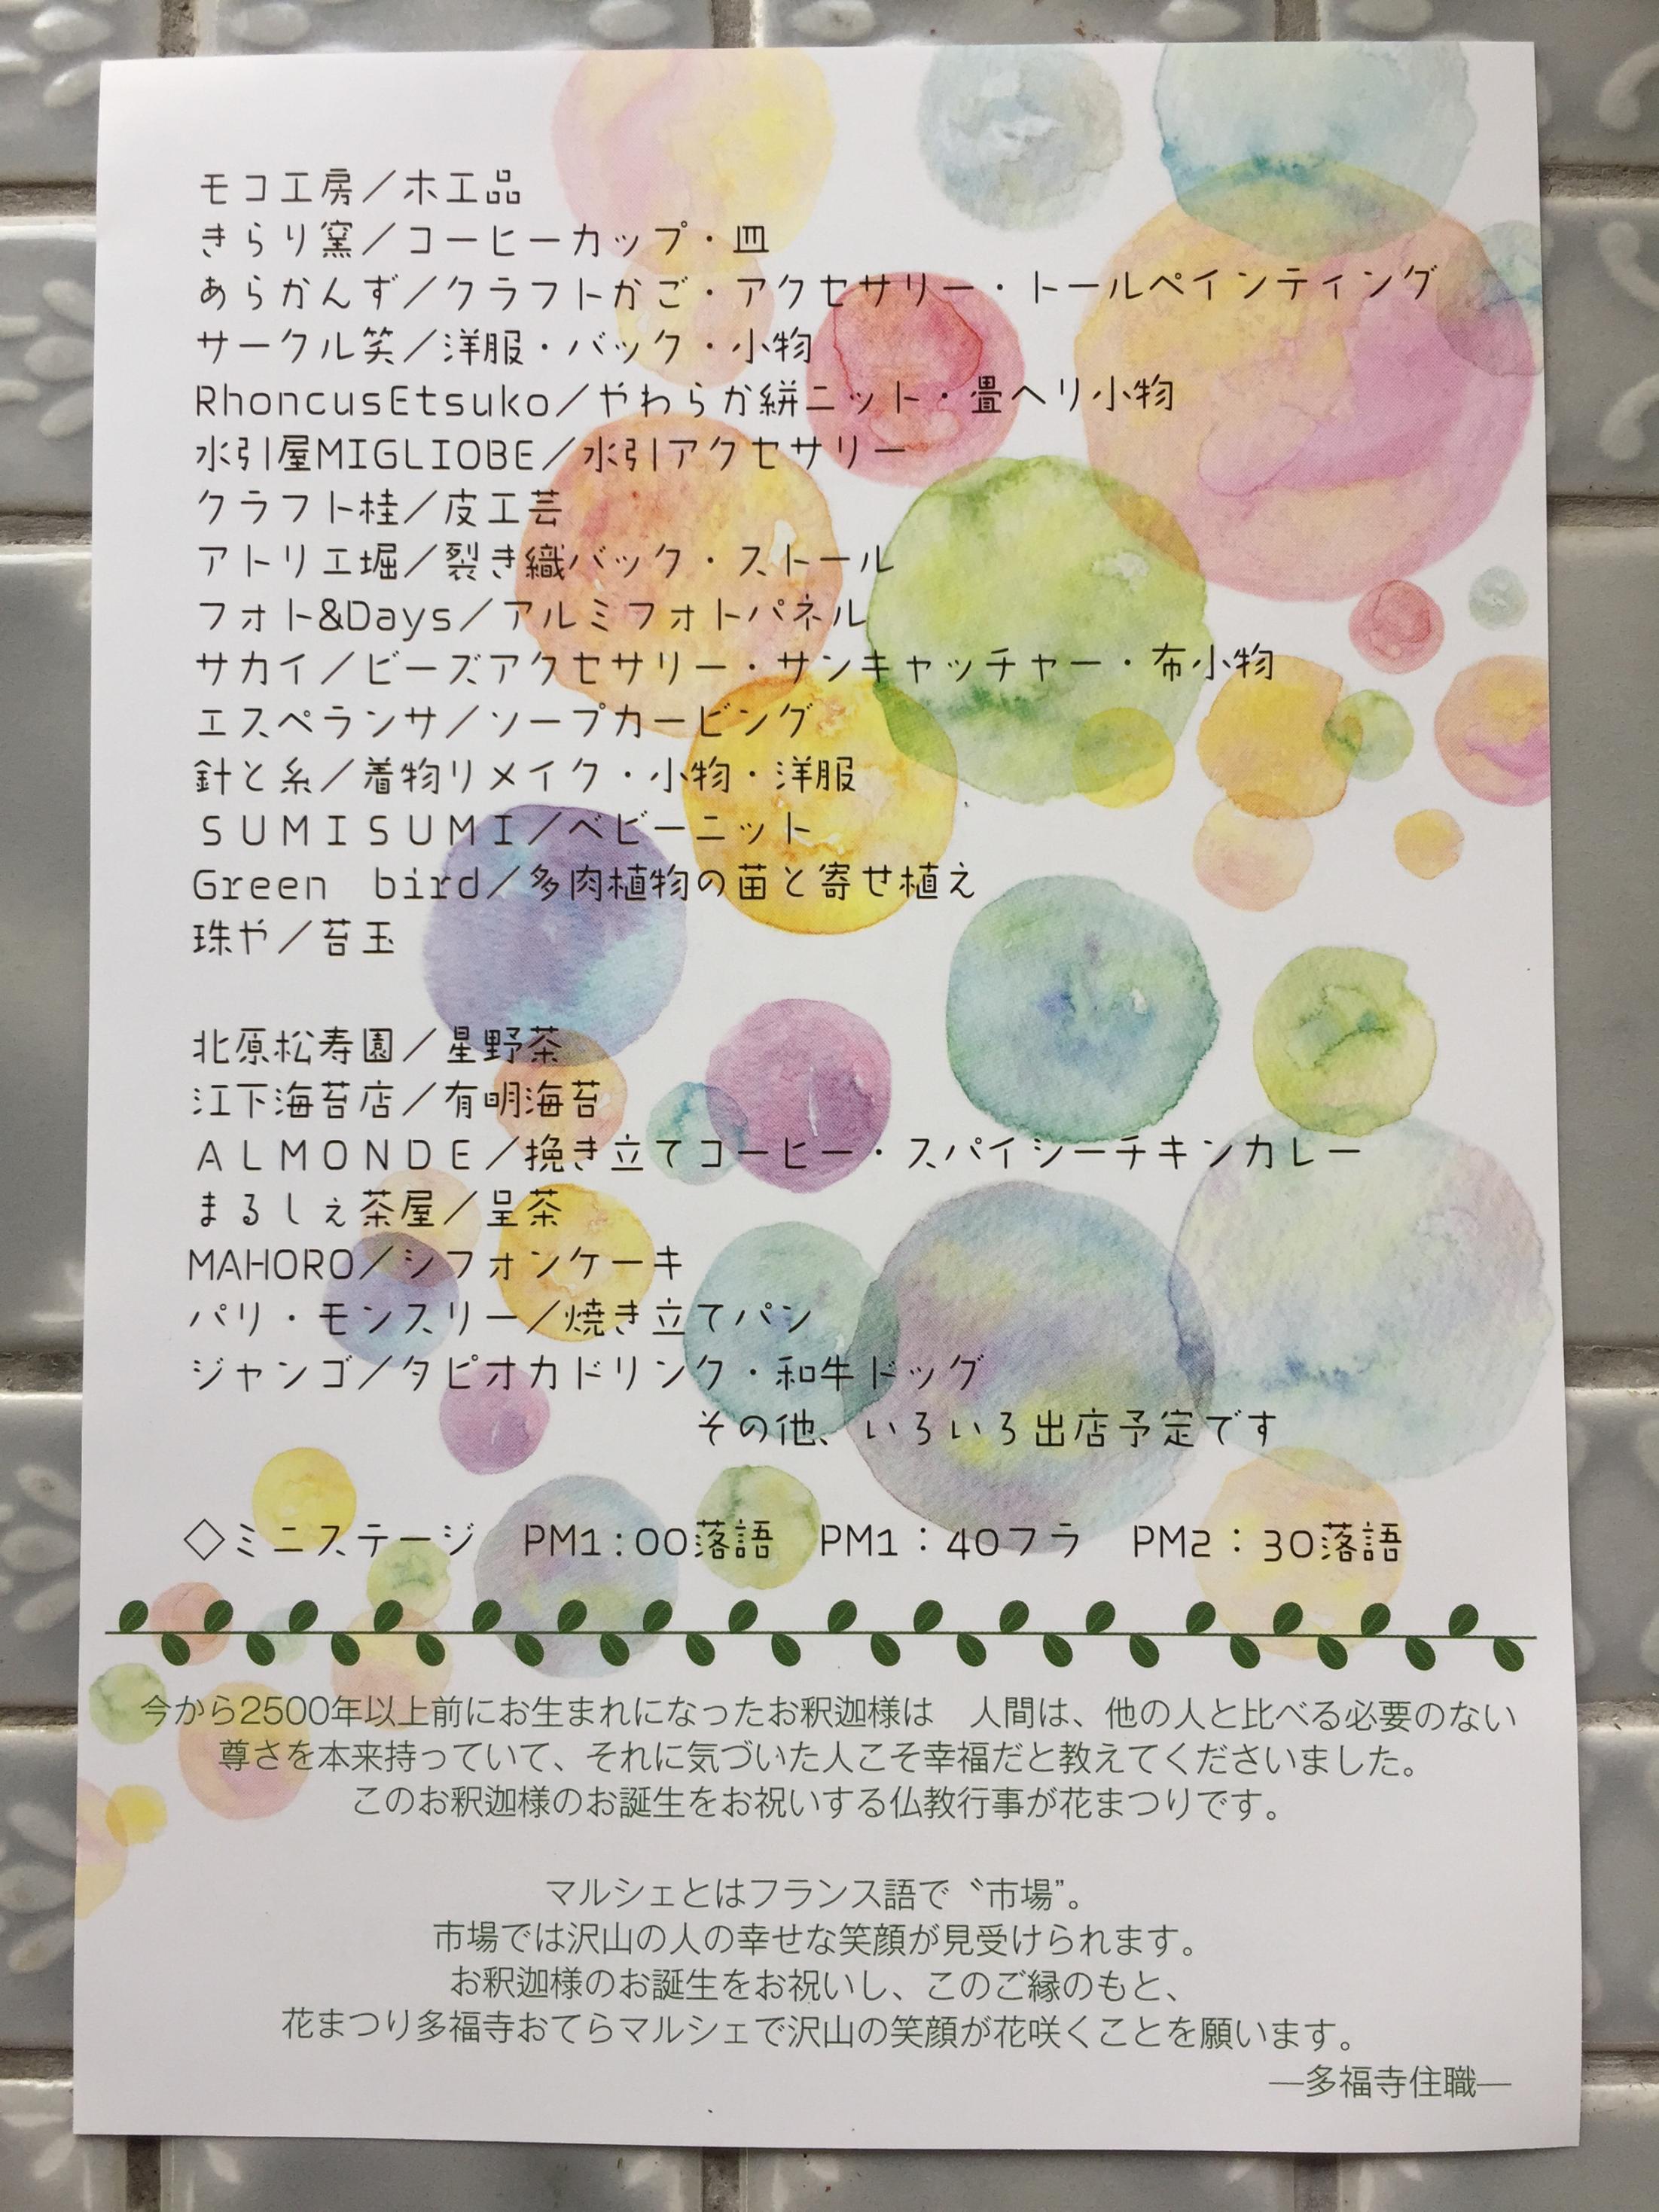 モコ工房／木工品
きらり窯／コーヒーカップ・皿
あらかんず／クラフトかご・アクセサリー・トールペインティング
サークル笑／洋服・バック・小物
RhoncusEtsuko／やわらか絣ニット・畳ヘリ小物
水引屋MIGLIOBE／水引アクセサリー
クラフト桂／皮工芸
アトリエ堀／裂き織バック・ストール
フォト&Days／アルミフォトパネル
サカイ／ビーズアクセサリー・サンキャッチャー・布小物
エスペランサ／ソープカービング
針と糸／着物リメイク・小物・洋服
ＳＵＭＩＳＵＭＩ／ベビーニット
Green　bird／多肉植物の苗と寄せ植え
珠や／苔玉
北原松寿園／星野茶
江下海苔店／有明海苔
ＡＬＭＯＮＤＥ／挽き立てコーヒー・スパイシーチキンカレー
まるしぇ茶屋／呈茶
MAHORO／シフォンケーキ
パリ・モンスリー／焼き立てパン
ジャンゴ／タピオカドリンク・和牛ドッグ
その他、いろいろ出店予定です
◇ミニステージ　PM1:00落語　PM1：40フラ　PM2：30落語
今から2500年以上前にお生まれになったお釈迦様は　人間は、他の人と比べる必要のない
尊さを本来持っていて、それに気づいた人こそ幸福だと教えてくださいました。
このお釈迦様のお誕生をお祝いする仏教行事が花まつりです。
マルシェとはフランス語で〝市場”。
市場では沢山の人の幸せな笑顔が見受けられます。
お釈迦様のお誕生をお祝いし、このご縁のもと、
花まつり多福寺おてらマルシェで沢山の笑顔が花咲くことを願います。
―多福寺住職―